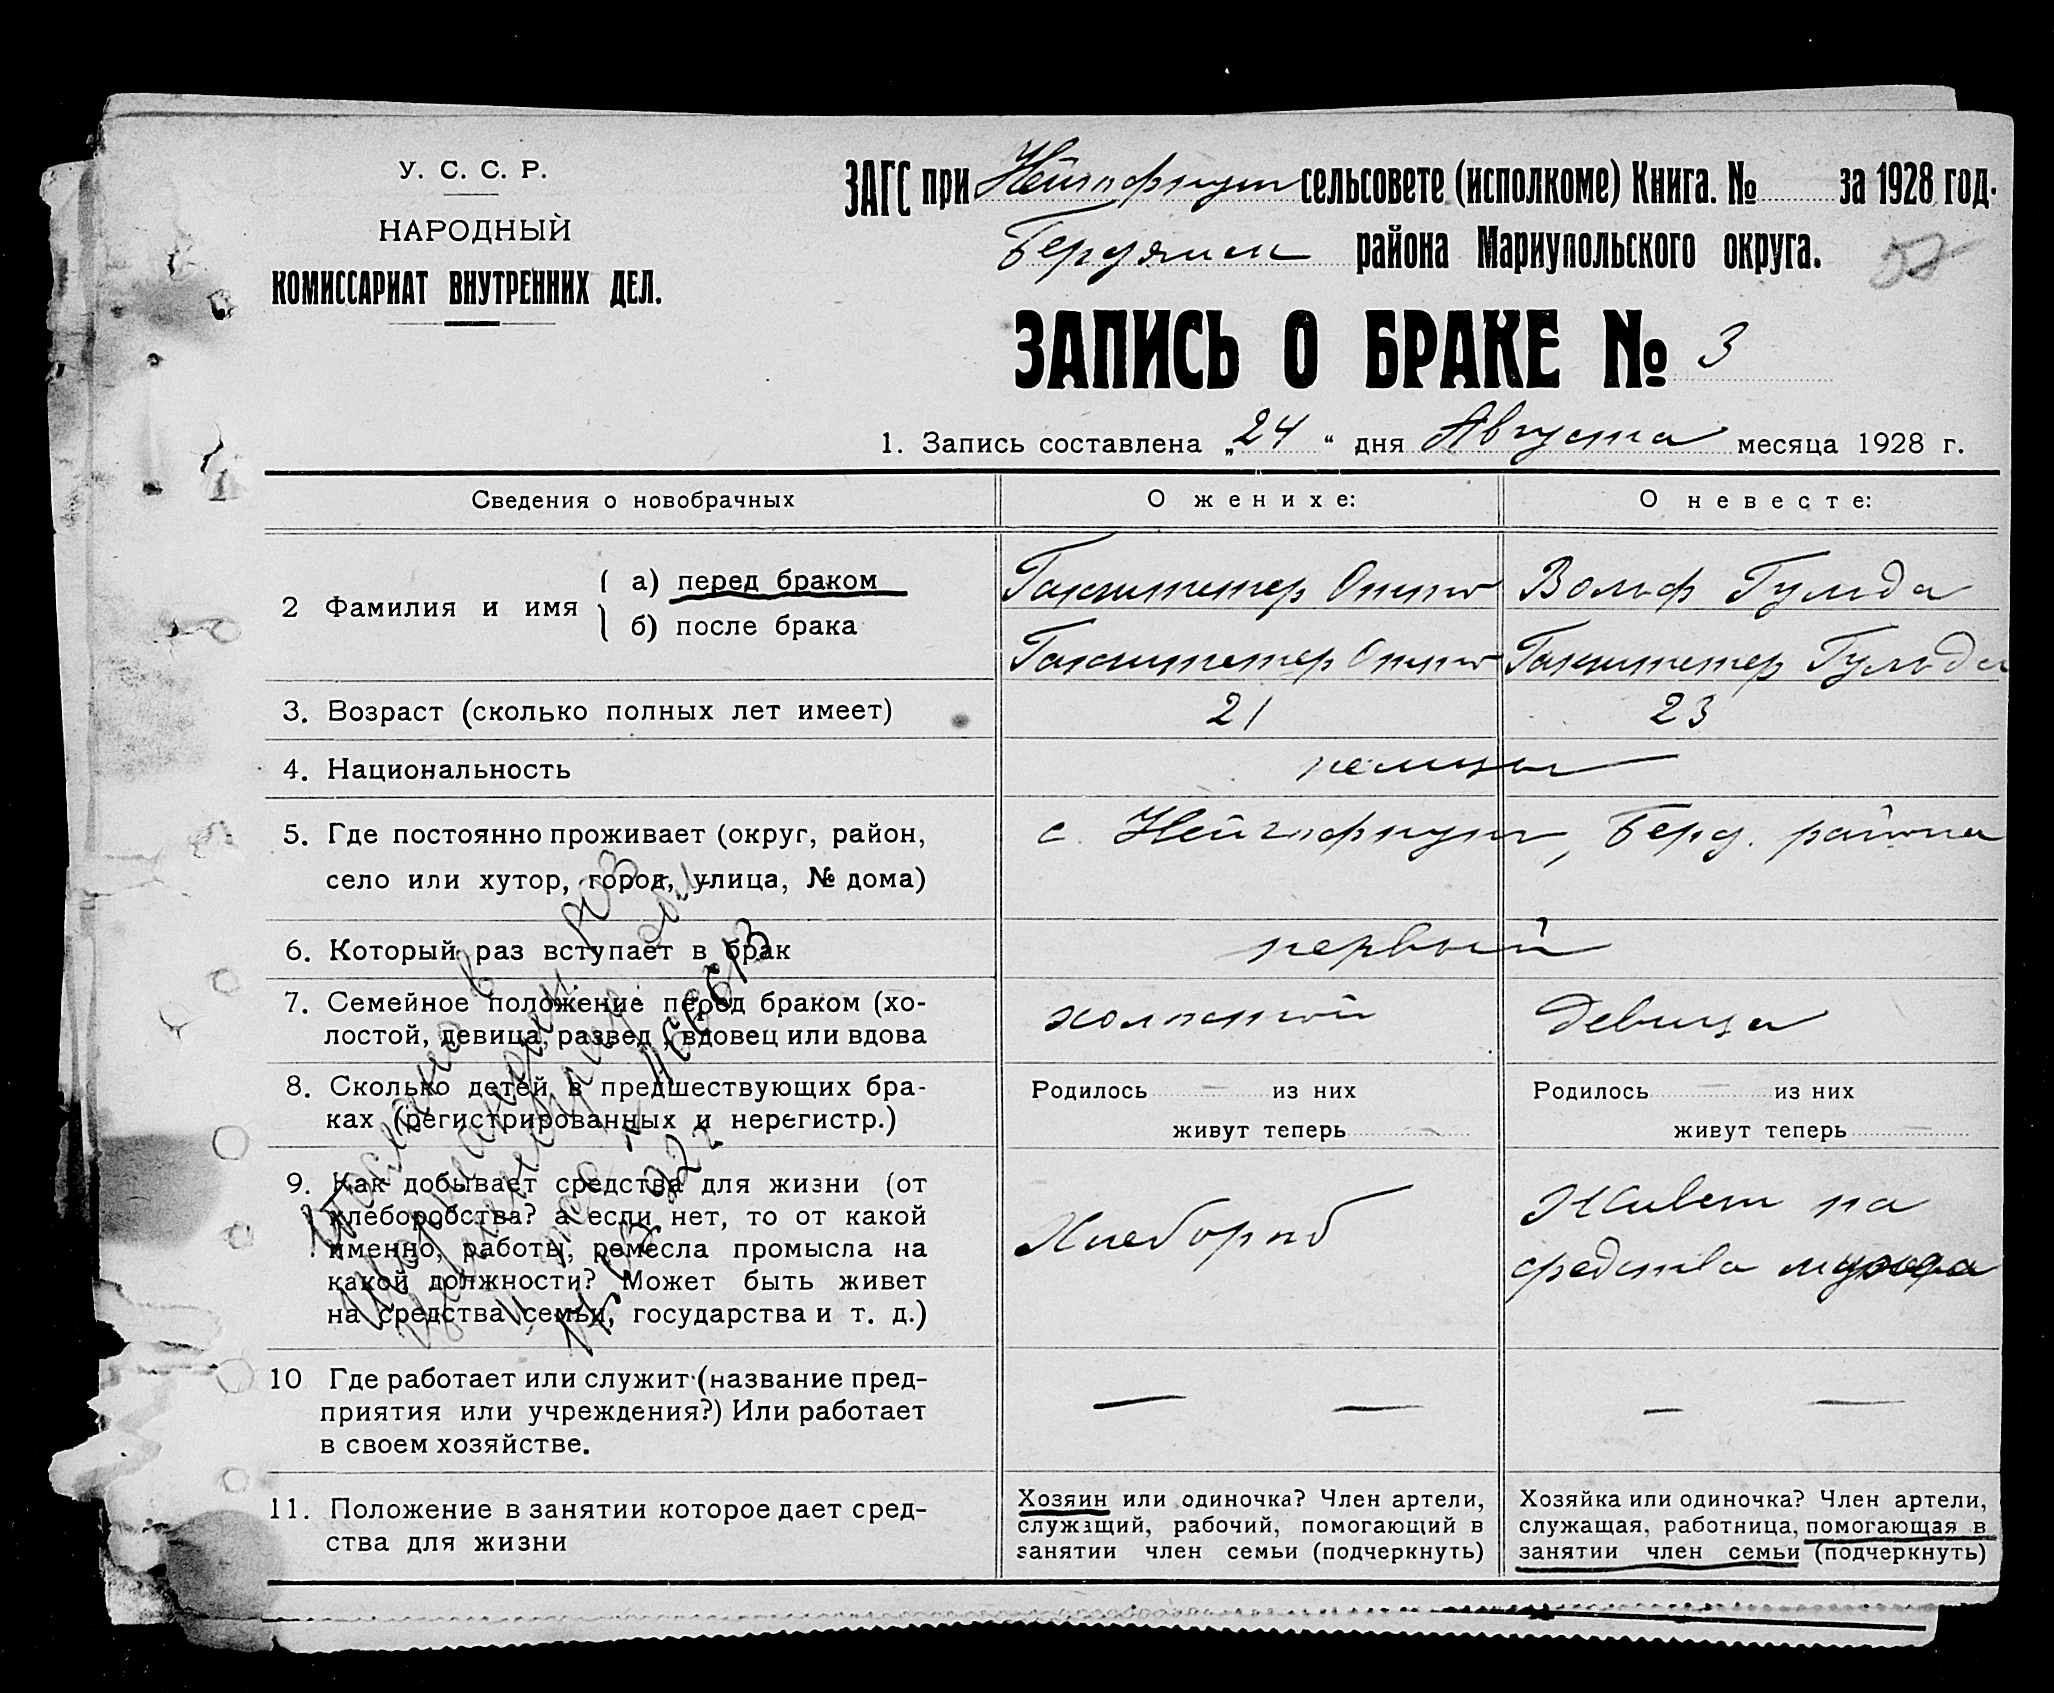 У. С. С. Р.
НАРОДНЫЙ
КОМИССАРИАТ ВНУТРЕННИХ ДЕЛ.
ЗАГС при Нейгофнунг сельсовете (исполкоме) Книга. № за 1928 год.
Бердянск района Мариупольского округа.
ЗАПИСЬ О БРАКЕ № 3
1. Запись составлена „24“ дня Августа месяца 1928 г.
Сведения о новобрачных О женихе: О невесте:
2 Фамилия и имя а) перед браком Гакштетер Отто Вольф Гульда
б) после брака Гакштетер Отто Гакштетер Гульда
3. Возраст (сколько полных лет имеет) 21 23
4. Национальность немцы
5. Где постоянно проживает (округ, район, с. Нейгофнунг, Берд. района
село или хутор, город, улица, № дома)
6. Который раз вступает в брак первый
7. Семейное положение перед браком (хо- холостой Девица
лостой, девица, развед., вдовец или вдова
8. Сколько детей в предшествующих бра- Родилось — из них Родилось — из них
ках (регистрированных и нерегистр.) живут теперь — живут теперь —
9. Как добывает средства для жизни (от Живет на
хлеборобства? а если нет, то от какой Хлебороб
именно, работы, ремесла промысла на средства мужа
какой должности? Может быть живет
на средства семьи, государства и т. д.)
10 Где работает или служит (название пред- — — — —
приятия или учреждения?) Или работает
в своем хозяйстве.
11. Положение в занятии которое дает сред- Хозяин или одиночка? Член артели, Хозяйка или одиночка? Член артели,
ства для жизни служащий, рабочий, помогающий в служащая, работница, помогающая в
занятии член семьи (подчеркнуть) занятии член семьи (подчеркнуть)